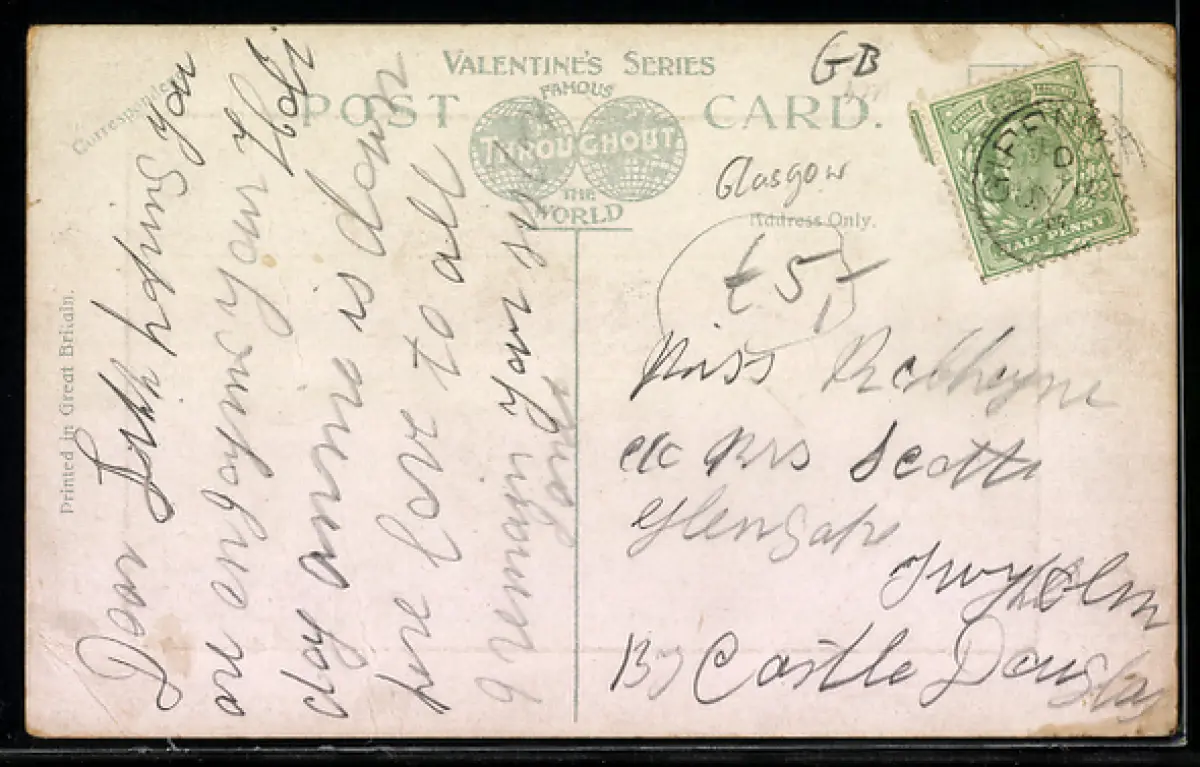 VALENTINE'S SERIES
FAMOUS
POST CARD.
THROUGHOUT
THE
WORLD
GB
Glasgow
Address Only.
£5/-
HALF PENNY
Printed in Great Britain.
Dear hoping you
are engoying your Holi
day annie is down
here love to all
I remain your
Miss
c/o Mrs Scott
Twynholm
By Castle Douglas